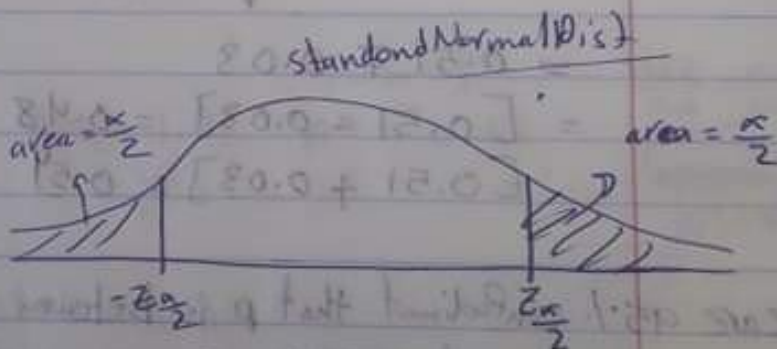 standond Normal Dist
area = α/2
area = α/2
-Zα/2
Zα/2